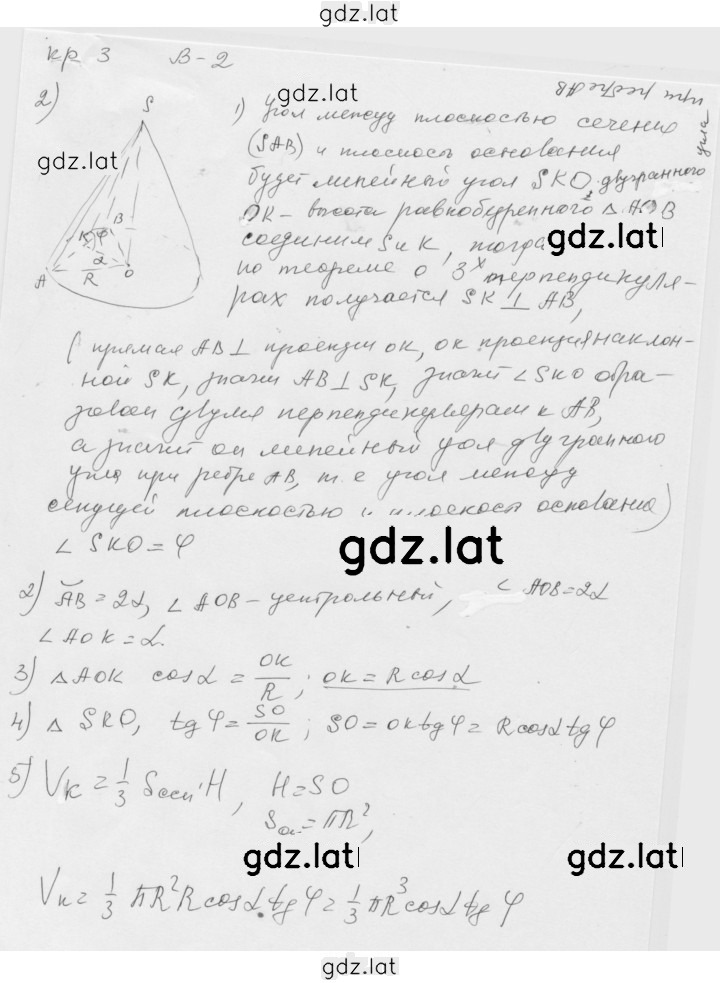 gdz.lat
кр 3 В-2
gdz.lat
при ребре АВ
2)
S
gdz.lat
К φ В
А α О
R
1) Угол между плоскостью сечения
(SAB) и плоскость основания
будет линейный угол SKO двугранного угла
ОК - высота равнобедренного △ АОВ
соединим S и К, тогда
gdz.lat
по теореме о 3х перпендикуля-
рах получается SK ⊥ AB,
(прямая АВ ⊥ проекции ОК, ОК проекция наклон-
ной SK, значит АВ ⊥ SK, значит ∠SKO обра-
зован двумя перпендикулярами к АВ,
а значит он линейный угол двугранного
угла при ребре АВ, т.е угол между
секущей плоскостью и плоскост основания)
∠ SKO = φ
gdz.lat
2) ᴗAB = 2α, ∠ AOB - центральный, ∠ AOB = 2α
∠ AOK = α.
3) △ AOK cos α = OK/R ; OK = R cos α
4) △ SKO, tg φ = SO/OK ; SO = OK tg φ = R cos α tg φ
5) Vк = 1/3 Sосн · H, H = SO
Sосн = πR²,
gdz.lat
gdz.lat
Vк = 1/3 πR² R cos α tg φ = 1/3 πR³ cos α tg φ
gdz.lat